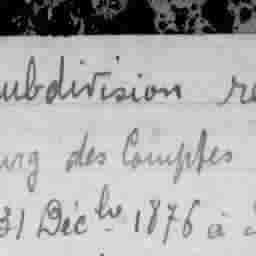 ubdivision re
urg des Comptes
31 Déc bre 1876 à